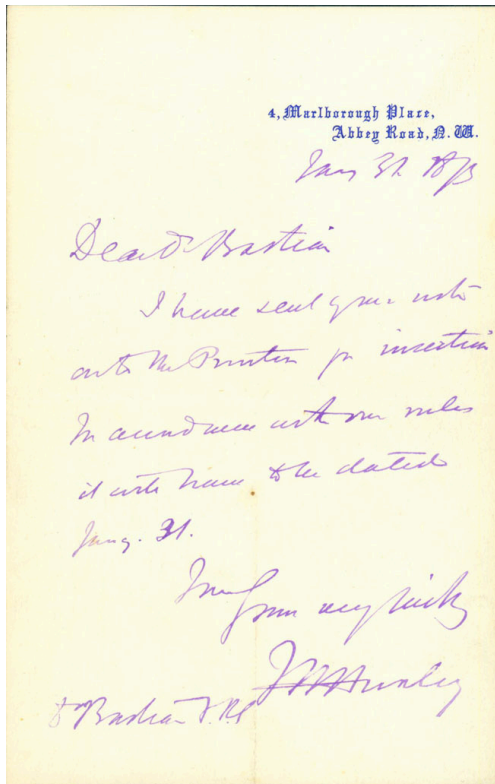 4, Marlborough Place,
Abbey Road, N.W.
Jany 31 1873
Dear Dr Bastian
I have sent your note
on to the Printer for insertion
In accordance with our rules
it will have to be dated
Jany. 31.
I am
Yours very faithfully
T H Huxley
Dr Bastian F.R.S